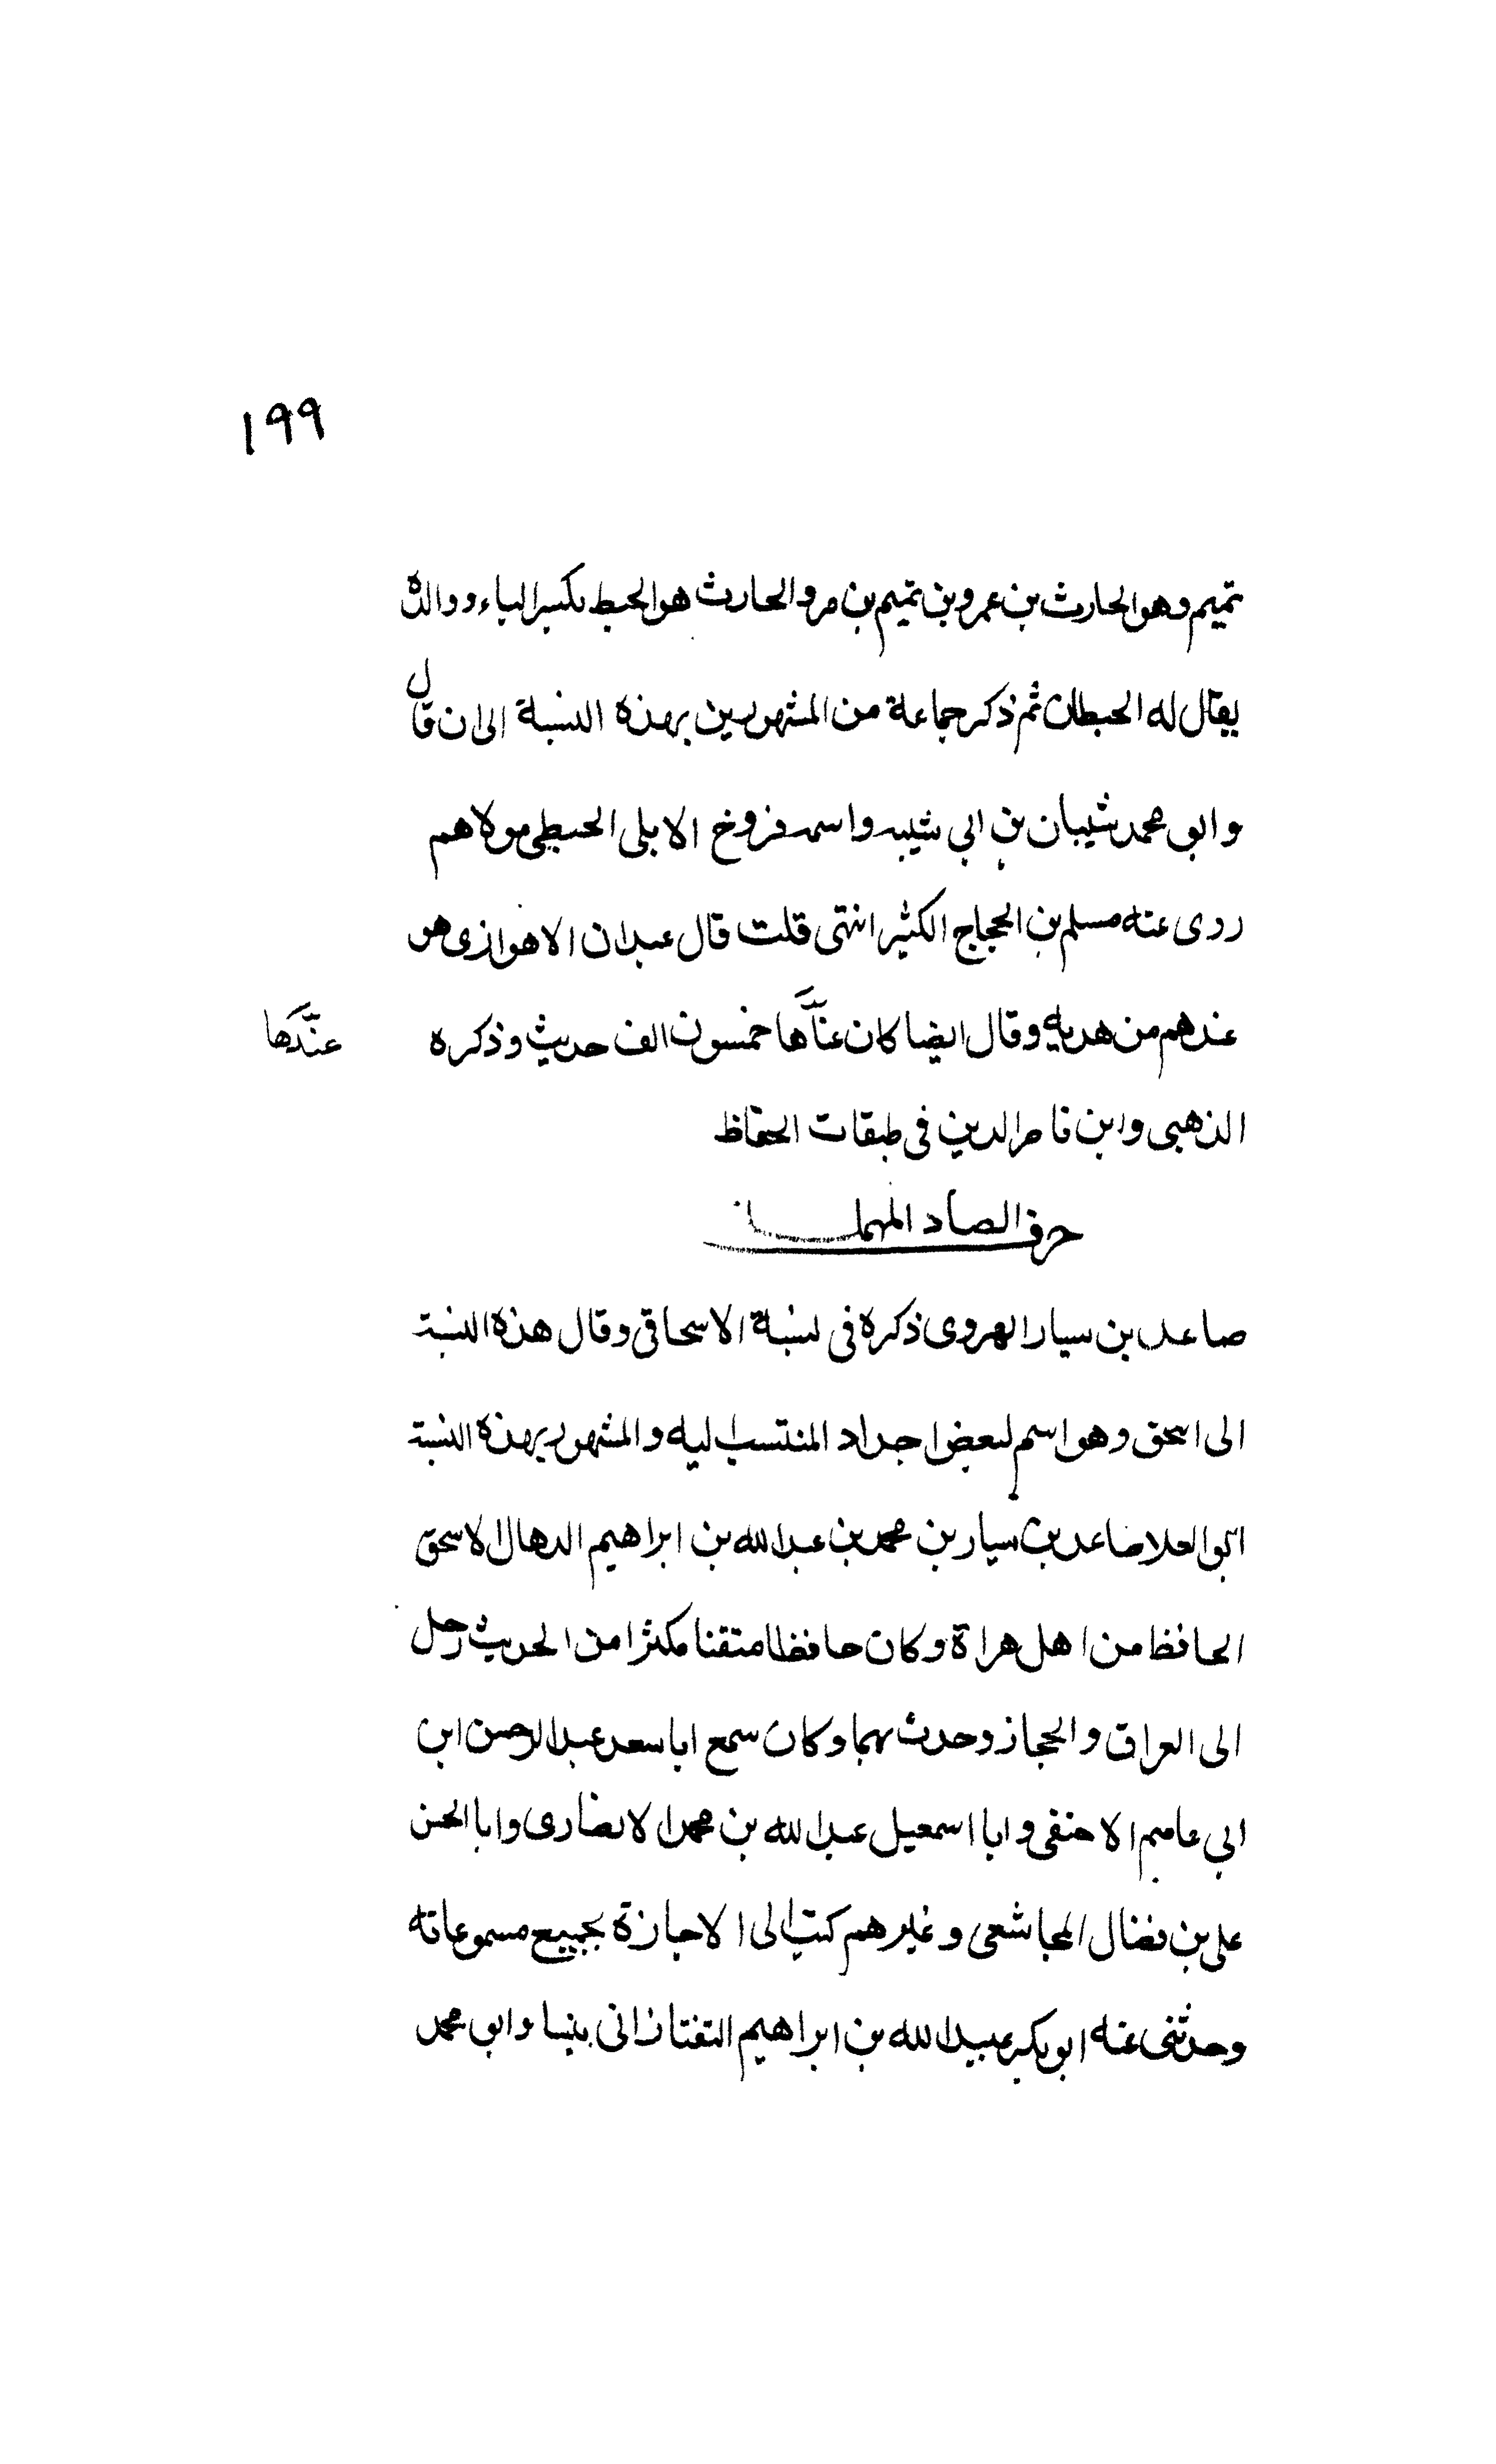 ١٩٩
تميم وهو الحارث بن عمرو بن تميم بن مر والحارث هو الحبط بكسر الباء ووالده
يقال له الحبطان ثم ذكر جماعة من المشهورين بهذه النسبة الى ان قال
وابو محمد شيبان بن ابي شيبه واسمه فروخ الابلي الحبطي مولاهم
روى عنه مسلم بن الحجاج الكثير انتهى قلت قال عبدان الاهوازى هو
عندهم من هدبه وقال ايضا كان عندها خمسون الف حديث وذكره
عندها
الذهبى وابن ناصر الدين فى طبقات الحفاظ
حرف الصاد المهملة
صاعد بن سيار الهروى ذكره فى نسبة الاسحاقى وقال هذه النسبة
الى اسحق وهو اسم لبعض اجداد المنتسب اليه والمشهور بهذه النسبة
ابو العلا صاعد بن سيار بن محمد بن عبد الله بن ابراهيم الدهان الاسحقى
الحافظ من اهل هراة وكان حافظا متقنا مكثرا من الحديث رحل
الى العراق والحجاز وحدث بهما وكان سمع ابا سعد عبد الرحمن ابن
ابي عاصم الاحنفى وابا اسمعيل عبد الله بن محمد الانصارى وابا الحسن
على بن فضال المجاشعى وغيرهم كتب الى الاجازة بجميع مسموعاته
وحدثنى عنه ابو بكر عبيد الله بن ابراهيم التفتازانى بنسا وابو محمد